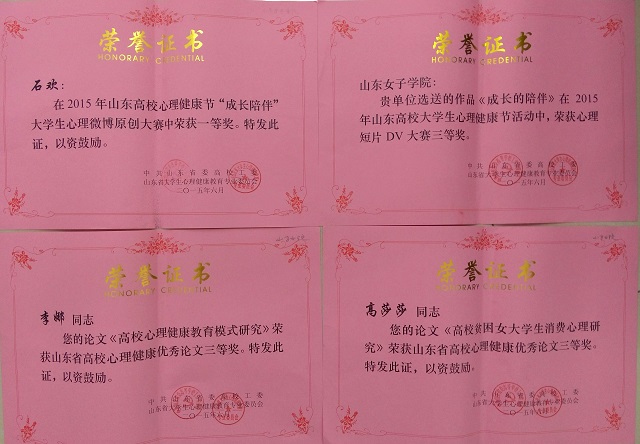 荣誉证书
HONORARY CREDENTIAL
石欢：
在2015年山东高校心理健康节“成长陪伴”
大学生心理微博原创大赛中荣获一等奖。特发此
证，以资鼓励。
中共山东省委高校工委
山东省大学生心理健康教育专业委员会
二〇一五年六月
荣誉证书
HONORARY CREDENTIAL
山东女子学院：
贵单位选送的作品《成长的陪伴》在2015
年山东高校大学生心理健康节活动中，荣获心理
短片DV大赛三等奖。
中共山东省委高校工委
山东省大学生心理健康教育专业委员会
二〇一五年六月
荣誉证书
HONORARY CREDENTIAL
李娜 同志
您的论文《高校心理健康教育模式研究》荣
获山东省高校心理健康优秀论文三等奖。特发此
证，以资鼓励。
中共山东省委高校工委
山东省大学生心理健康教育专业委员会
二〇一五年六月
荣誉证书
HONORARY CREDENTIAL
高莎莎 同志
您的论文《高校贫困女大学生消费心理研
究》荣获山东省高校心理健康优秀论文三等奖。
特发此证，以资鼓励。
中共山东省委高校工委
山东省大学生心理健康教育专业委员会
二〇一五年六月